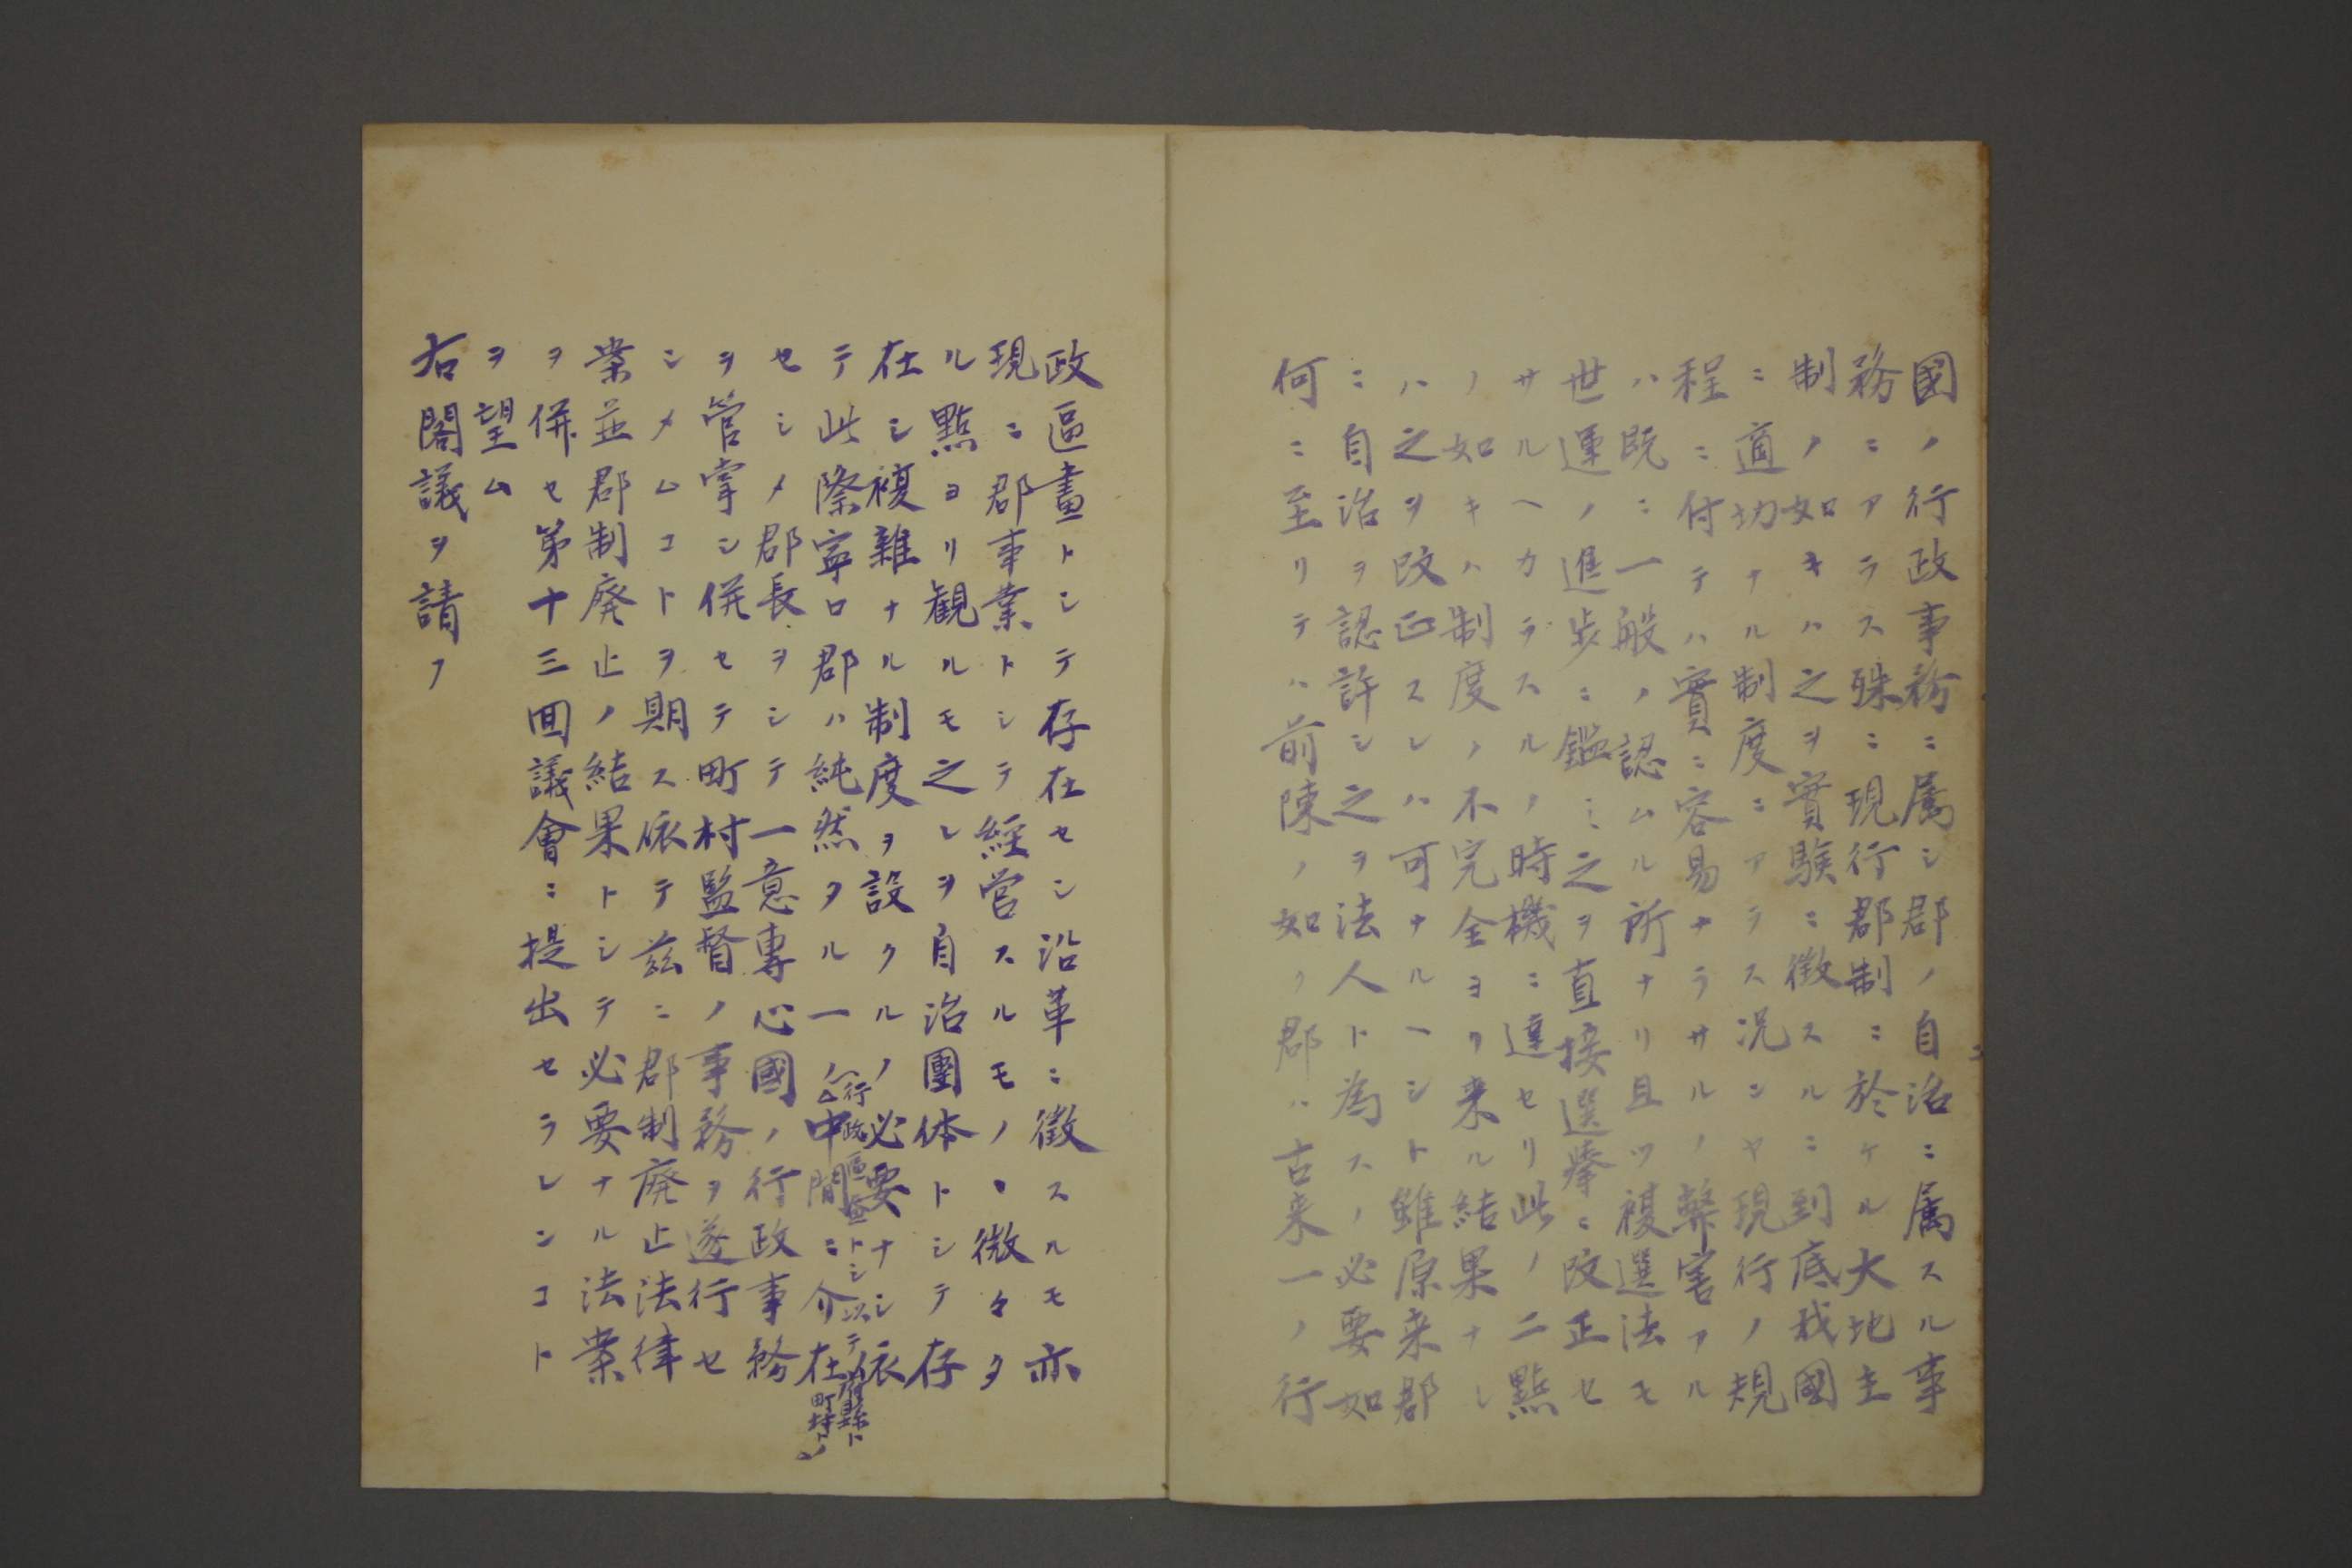 國ノ行政事務ニ属シ郡ノ自治ニ属スル事
務ニアラス殊ニ現行郡制ニ於ケル大地主
制ノ如キハ之ヲ實験ニ徴スルニ到底我國
ニ適切ナル制度ニアラス況ンヤ現行ノ規
程ニ付テハ實ニ容易ナラサルノ弊害アル
ハ既ニ一般ノ認ムル所ナリ且ツ複選法モ
世運ノ進歩ニ鑑ミ之ヲ直接選挙ニ改正セ
サルヘカラスルノ時機ニ達セリ此ノ二點
ノ如キハ制度ノ不完全ヨリ来ル結果ナレ
ハ之ヲ改正スレハ可ナルヘシト雖原来郡
ニ自治ヲ認許シ之ヲ法人ト為スノ必要如
何ニ至リテハ前陳ノ如ク郡ハ古来一ノ行
政區畫トシテ存在セシ沿革ニ徴スルモ亦
現ニ郡事業トシテ経営スルモノヽ微々タ
ル點ヨリ観ルモ之レヲ自治團体トシテ存
在シ複雑ナル制度ヲ設クルノ必要ナシ依
テ此際寧ロ郡ハ純然タル一ノ行政區畫トシ以テ府縣ト町村トノ中間ニ介在
セシメ郡長ヲシテ一意専心國ノ行政事務
ヲ管掌シ併セテ町村監督ノ事務ヲ遂行セ
シメムコトヲ期ス依テ茲ニ郡制廃止法律
案並郡制廃止ノ結果トシテ必要ナル法案
ヲ併セ第十三回議會ニ提出セラレンコト
ヲ望ム
右閣議ヲ請フ